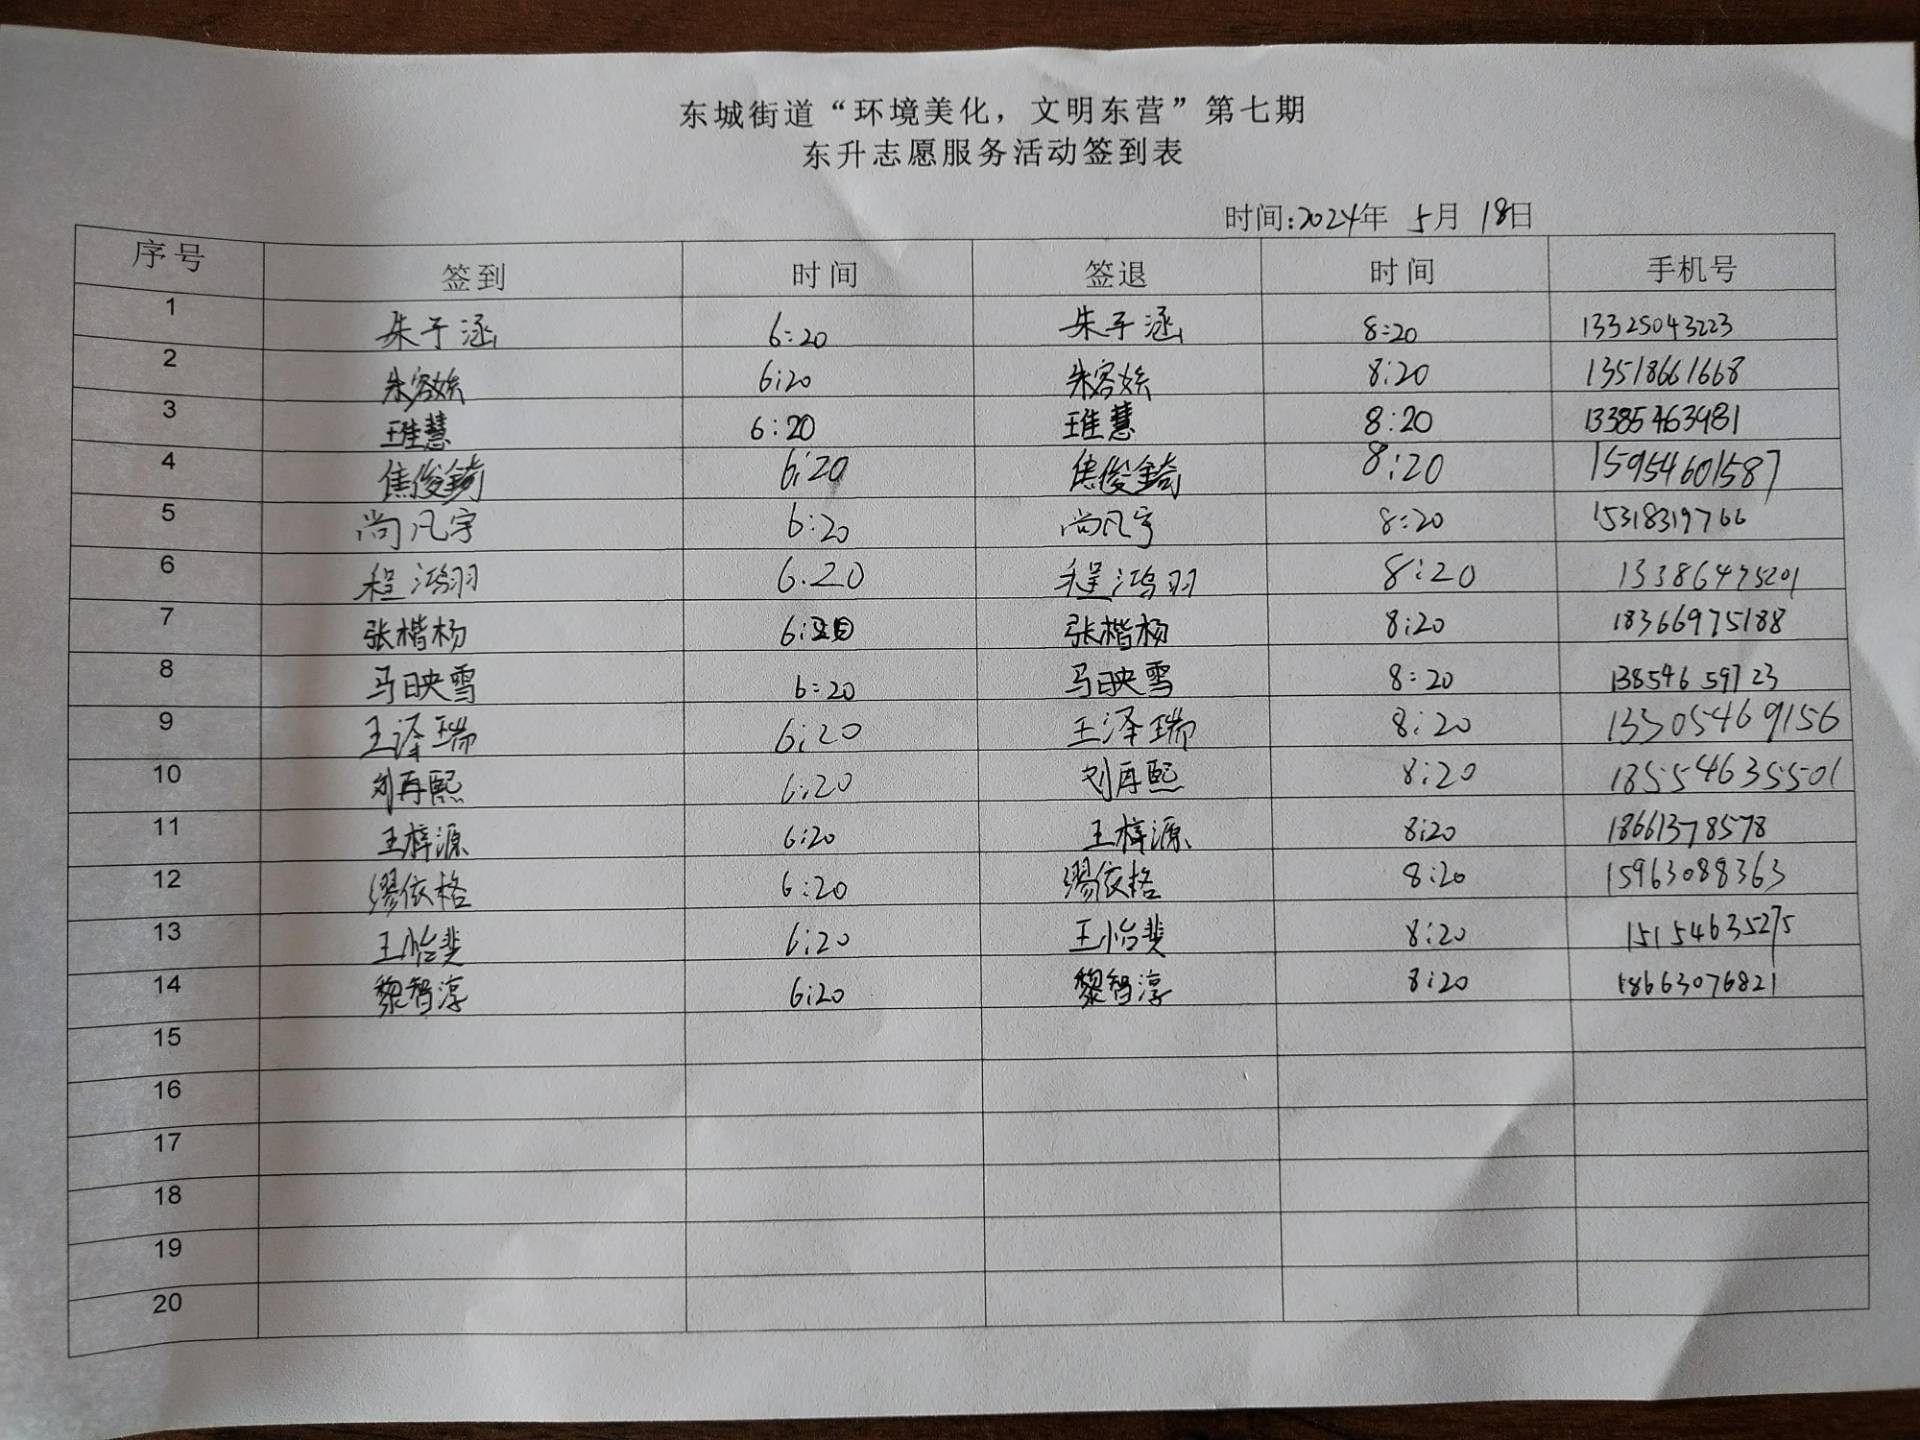 东城街道“环境美化，文明东营”第七期
东升志愿服务活动签到表
时间:2024年 5月 18日
序号 签到 时间 签退 时间 手机号
1 朱于涵 6:20 朱于涵 8:20 13325043223
2 朱容姝 6:20 朱容姝 8:20 13518661668
3 王佳慧 6:20 王佳慧 8:20 13385463981
4 焦俊錡 6:20 焦俊錡 8:20 15954601587
5 尚凡宇 6:20 尚凡宇 8:20 15318319766
6 程鸿羽 6.20 程鸿羽 8:20 13386475201
7 张楷杨 6: 张楷杨 8:20 18366975188
8 马映雪 6:20 马映雪 8:20 13854659723
9 王泽瑞 6:20 王泽瑞 8:20 13305469156
10 刘再熙 6:20 刘再熙 8:20 18554635501
11 王梓源 6:20 王梓源 8:20 18661378578
12 缪依格 6:20 缪依格 8:20 15963088363
13 王怡斐 6:20 王怡斐 8:20 15154635275
14 黎智淳 6:20 黎智淳 8:20 18663076821
15
16
17
18
19
20